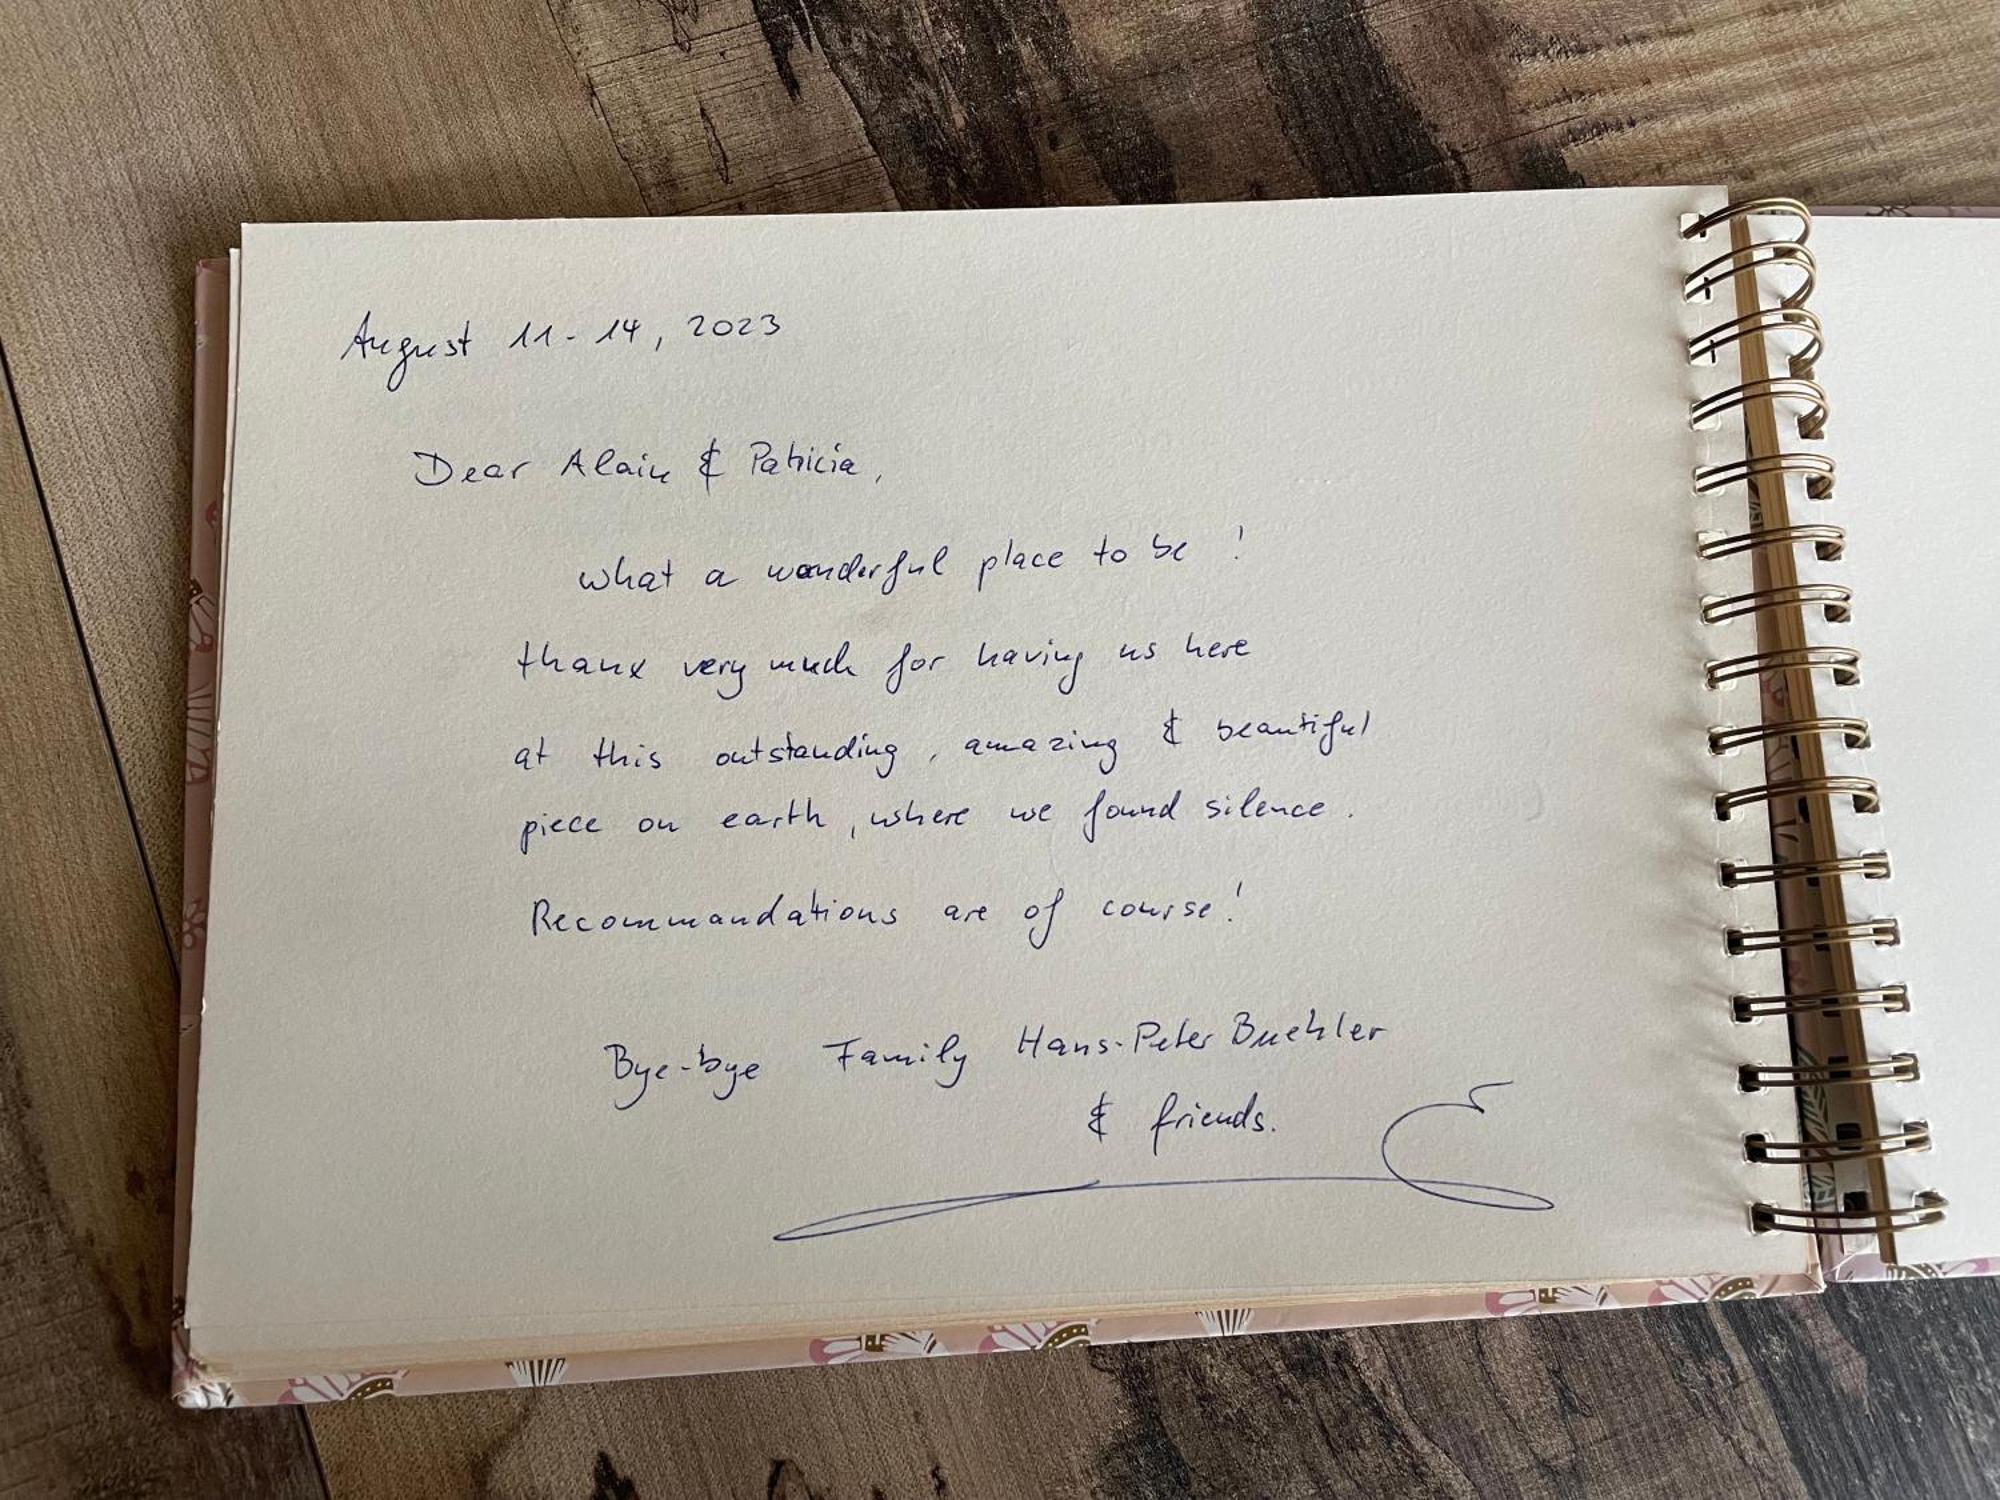 August 11-14, 2023
Dear Alain & Patricia,
what a wonderful place to be!
thanx very much for having us here
at this outstanding, amazing & beautiful
piece on earth, where we found silence.
Recommandations are of course!
Bye-bye Family Hans-Peter Buehler
& friends.